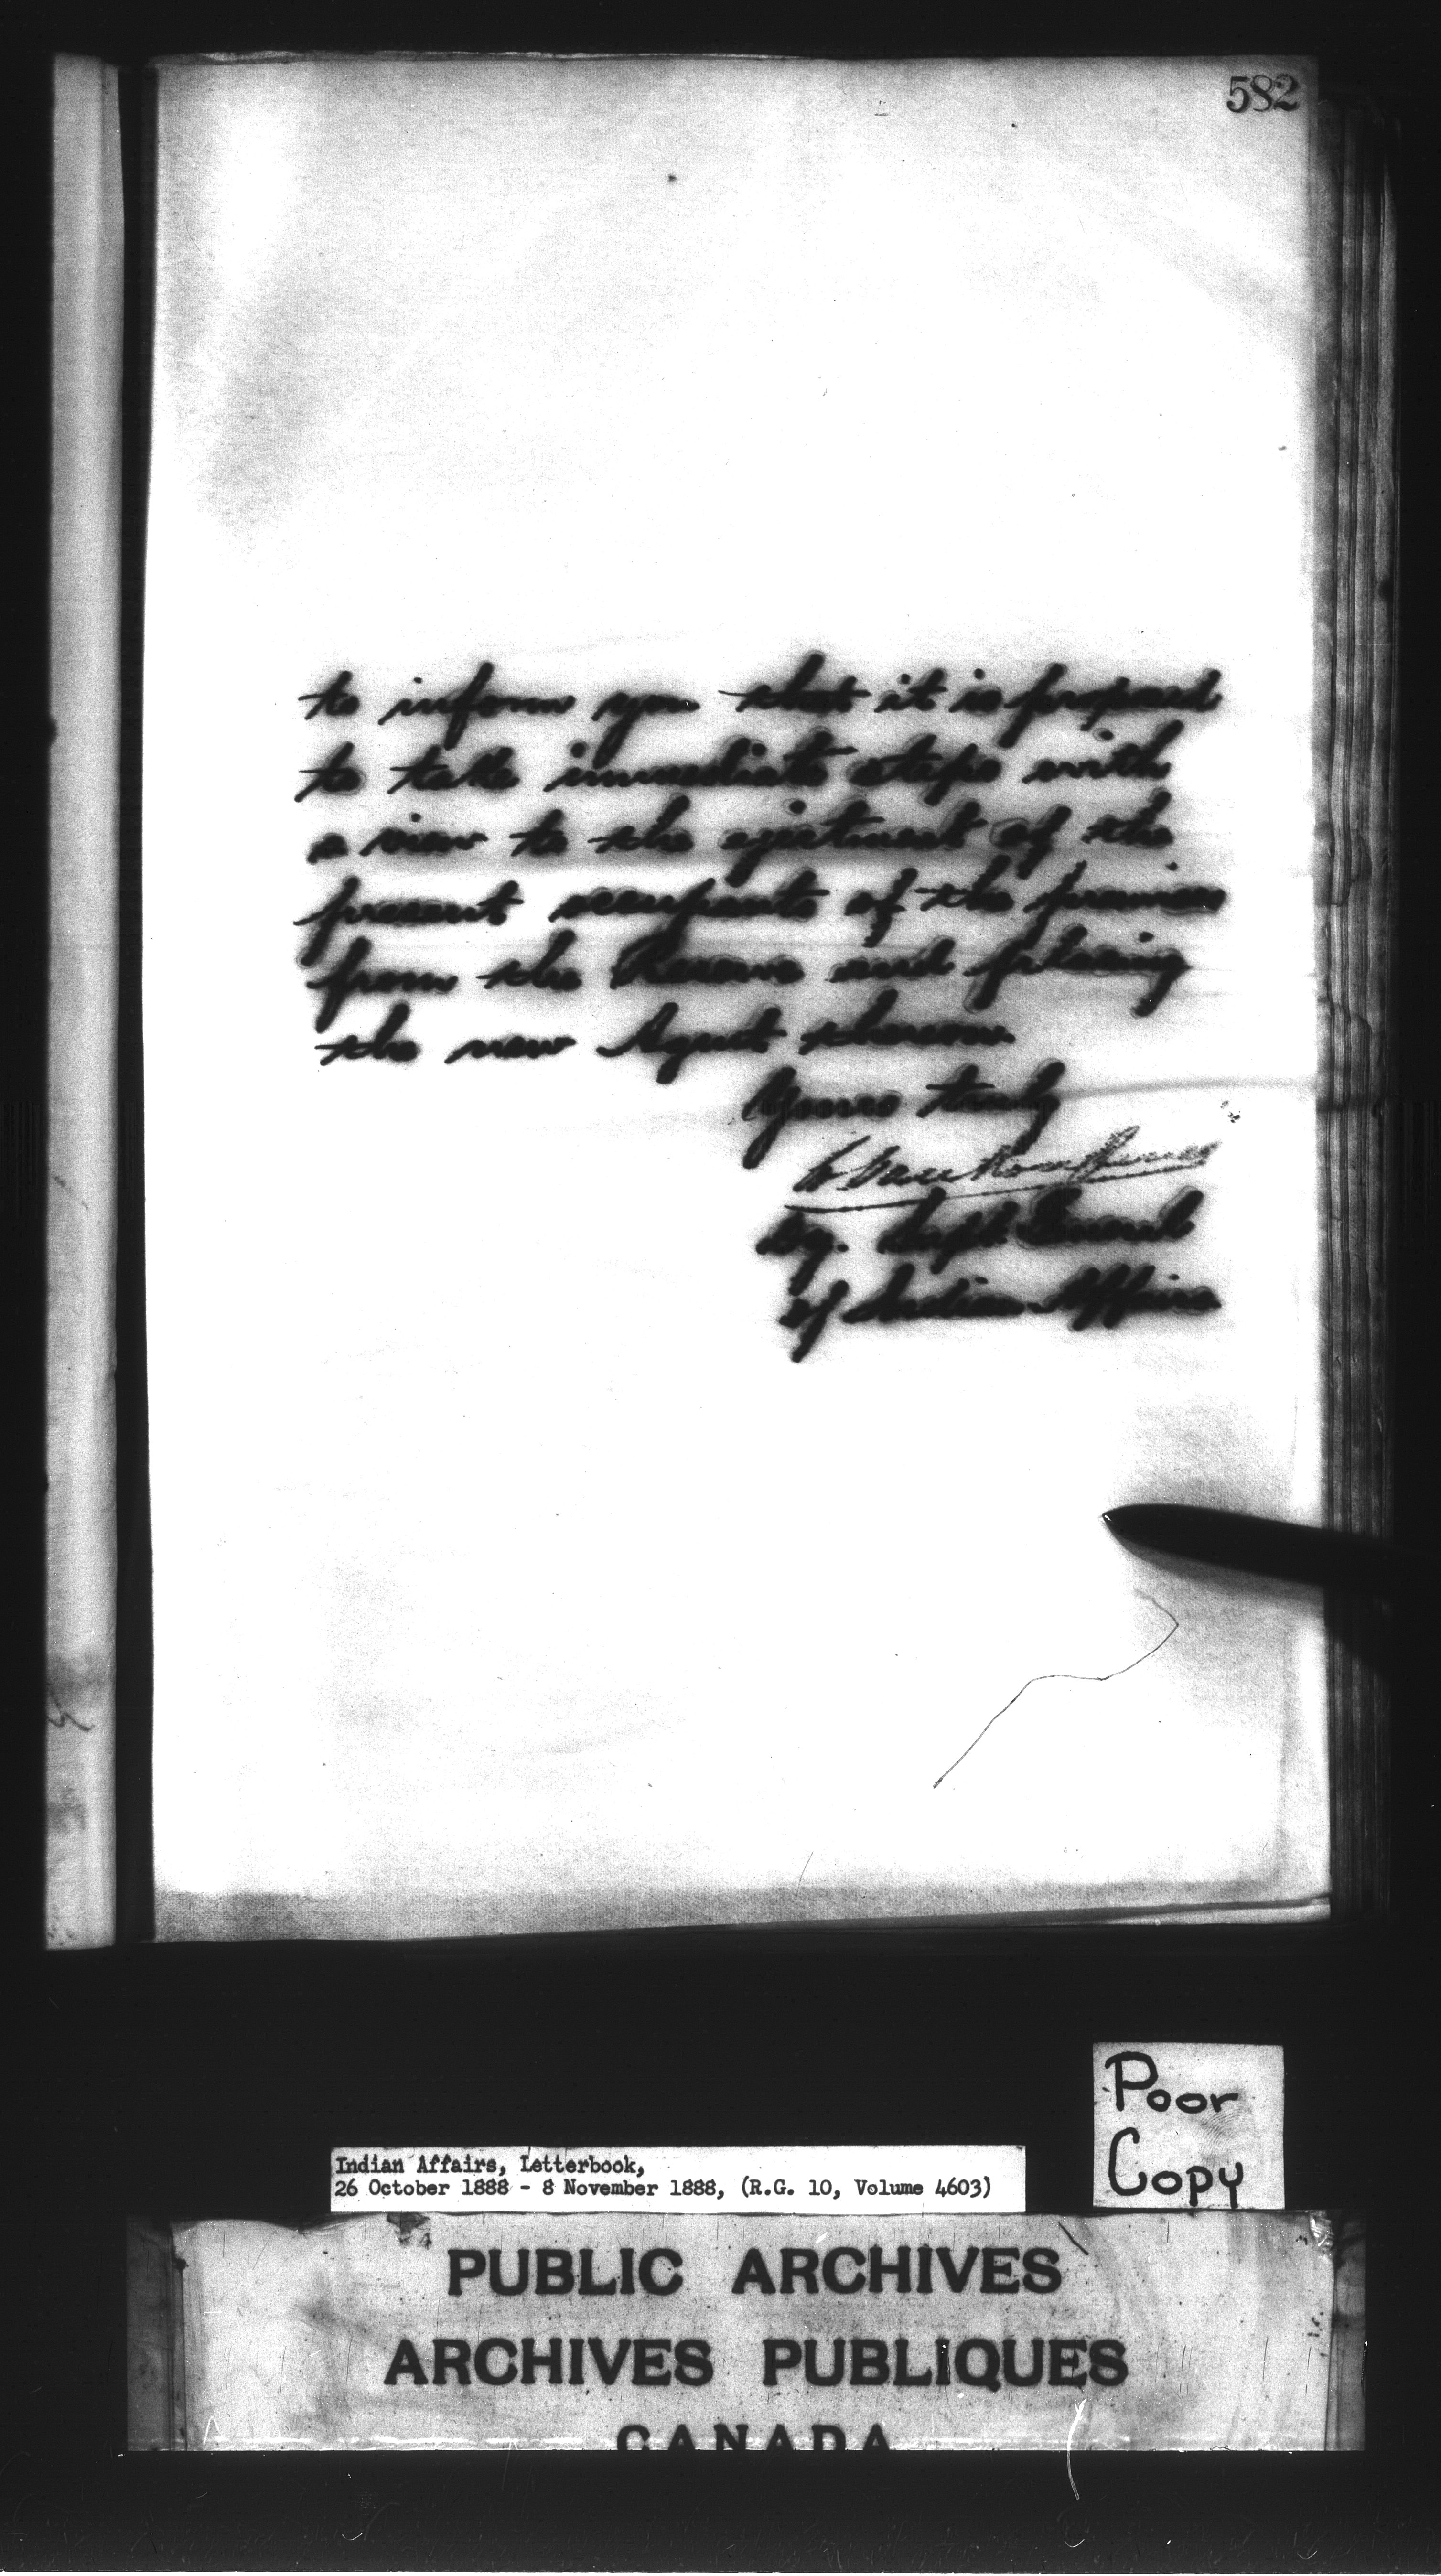 582
to inform you that it is proposed
to take immediate steps with
a view to the ejectment of the
present occupants of the premises
from the Reserve and placing
the new Agent thereon.
Yours truly
L. Vankoughnet
Dy. Supt. General
of Indian Affairs
Poor
Copy
Indian Affairs, Letterbook,
26 October 1888 - 8 November 1888, (R.G. 10, Volume 4603)
PUBLIC ARCHIVES
ARCHIVES PUBLIQUES
CANADA